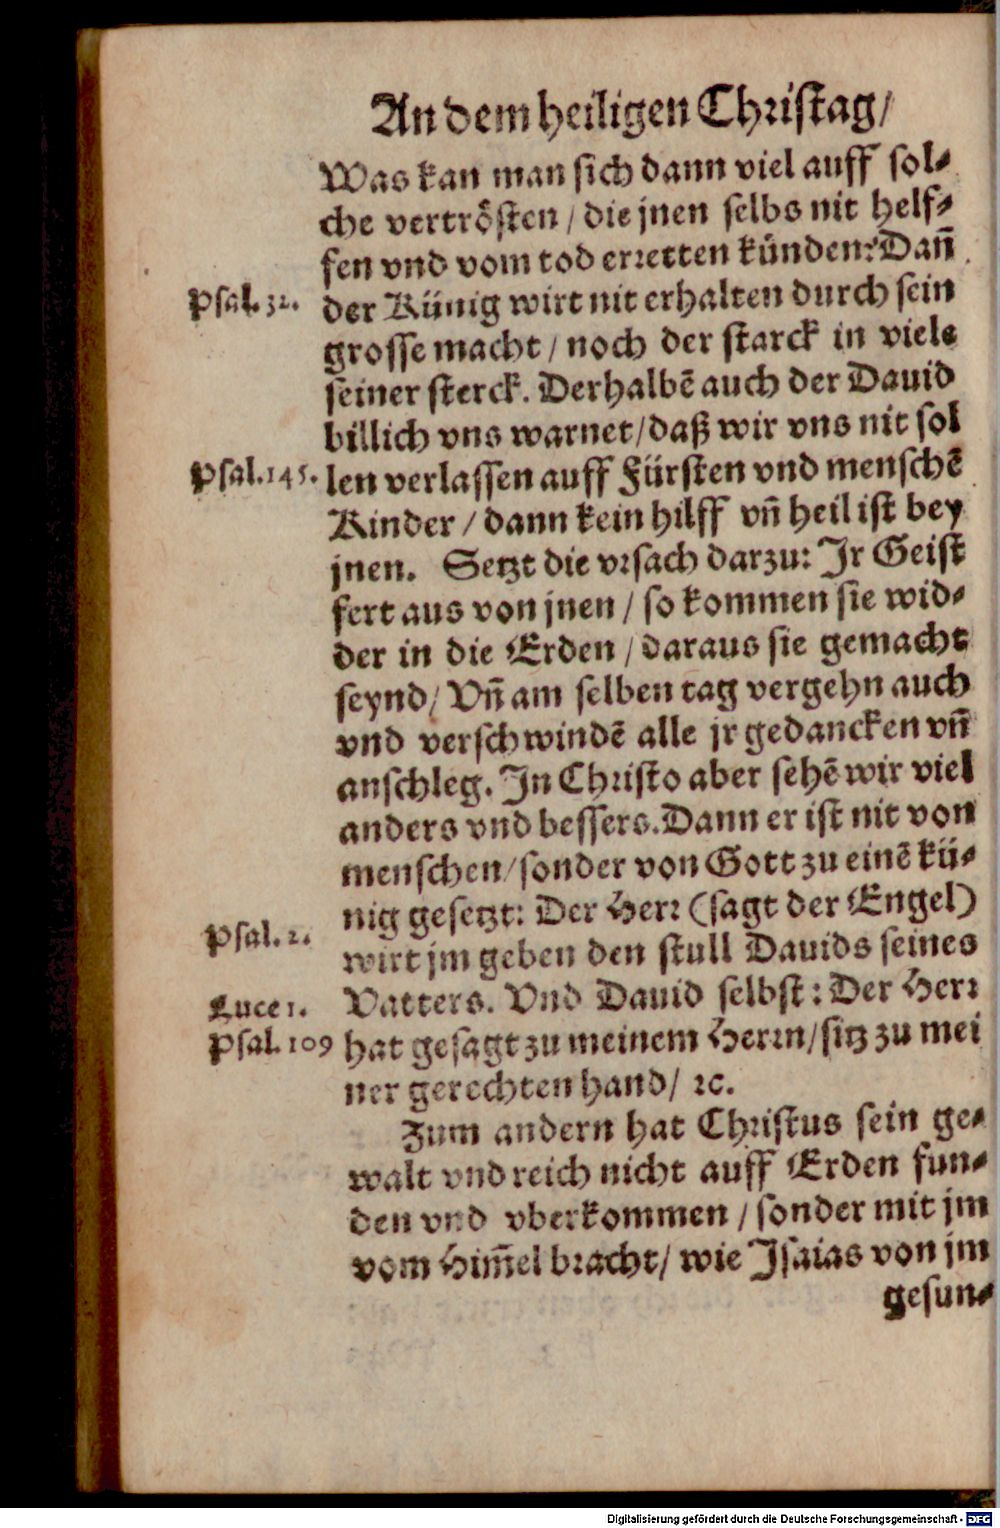 An dem heiligen Christag/
Was kan man sich dann viel auff sol-
che vertrösten / die jnen selbs nit helf-
fen vnd vom tod erretten künden? Dañ
Psal. 32.
der Künig wirt nit erhalten durch sein
grosse macht / noch der starck in viele
seiner sterck. Derhalbē auch der Dauid
billich vns warnet / daß wir vns nit sol
Psal. 145.
len verlassen auff Fürsten vnd menschē
Kinder / dann kein hilff vñ heil ist bey
jnen. Setzt die vrsach darzu: Ir Geist
fert aus von jnen / so kommen sie wid-
der in die Erden / daraus sie gemacht
seynd / Vñ am selben tag vergehn auch
vnd verschwindē alle jr gedancken vñ
anschleg. In Christo aber sehē wir viel
anders vnd bessers. Dann er ist nit von
menschen / sonder von Gott zu einē kü-
nig gesetzt: Der Herr (sagt der Engel)
Psal. 2.
wirt jm geben den stull Dauids seines
Luce 1.
Vatters. Vnd Dauid selbst: Der Herr
Psal. 109
hat gesagt zu meinem Herrn / sitz zu mei
ner gerechten hand / ꝛc.
Zum andern hat Christus sein ge-
walt vnd reich nicht auff Erden fun-
den vnd vberkommen / sonder mit jm
vom Him̄el bracht / wie Isaias von jm
gesun-
Digitalisierung gefördert durch die Deutsche Forschungsgemeinschaft - DFG